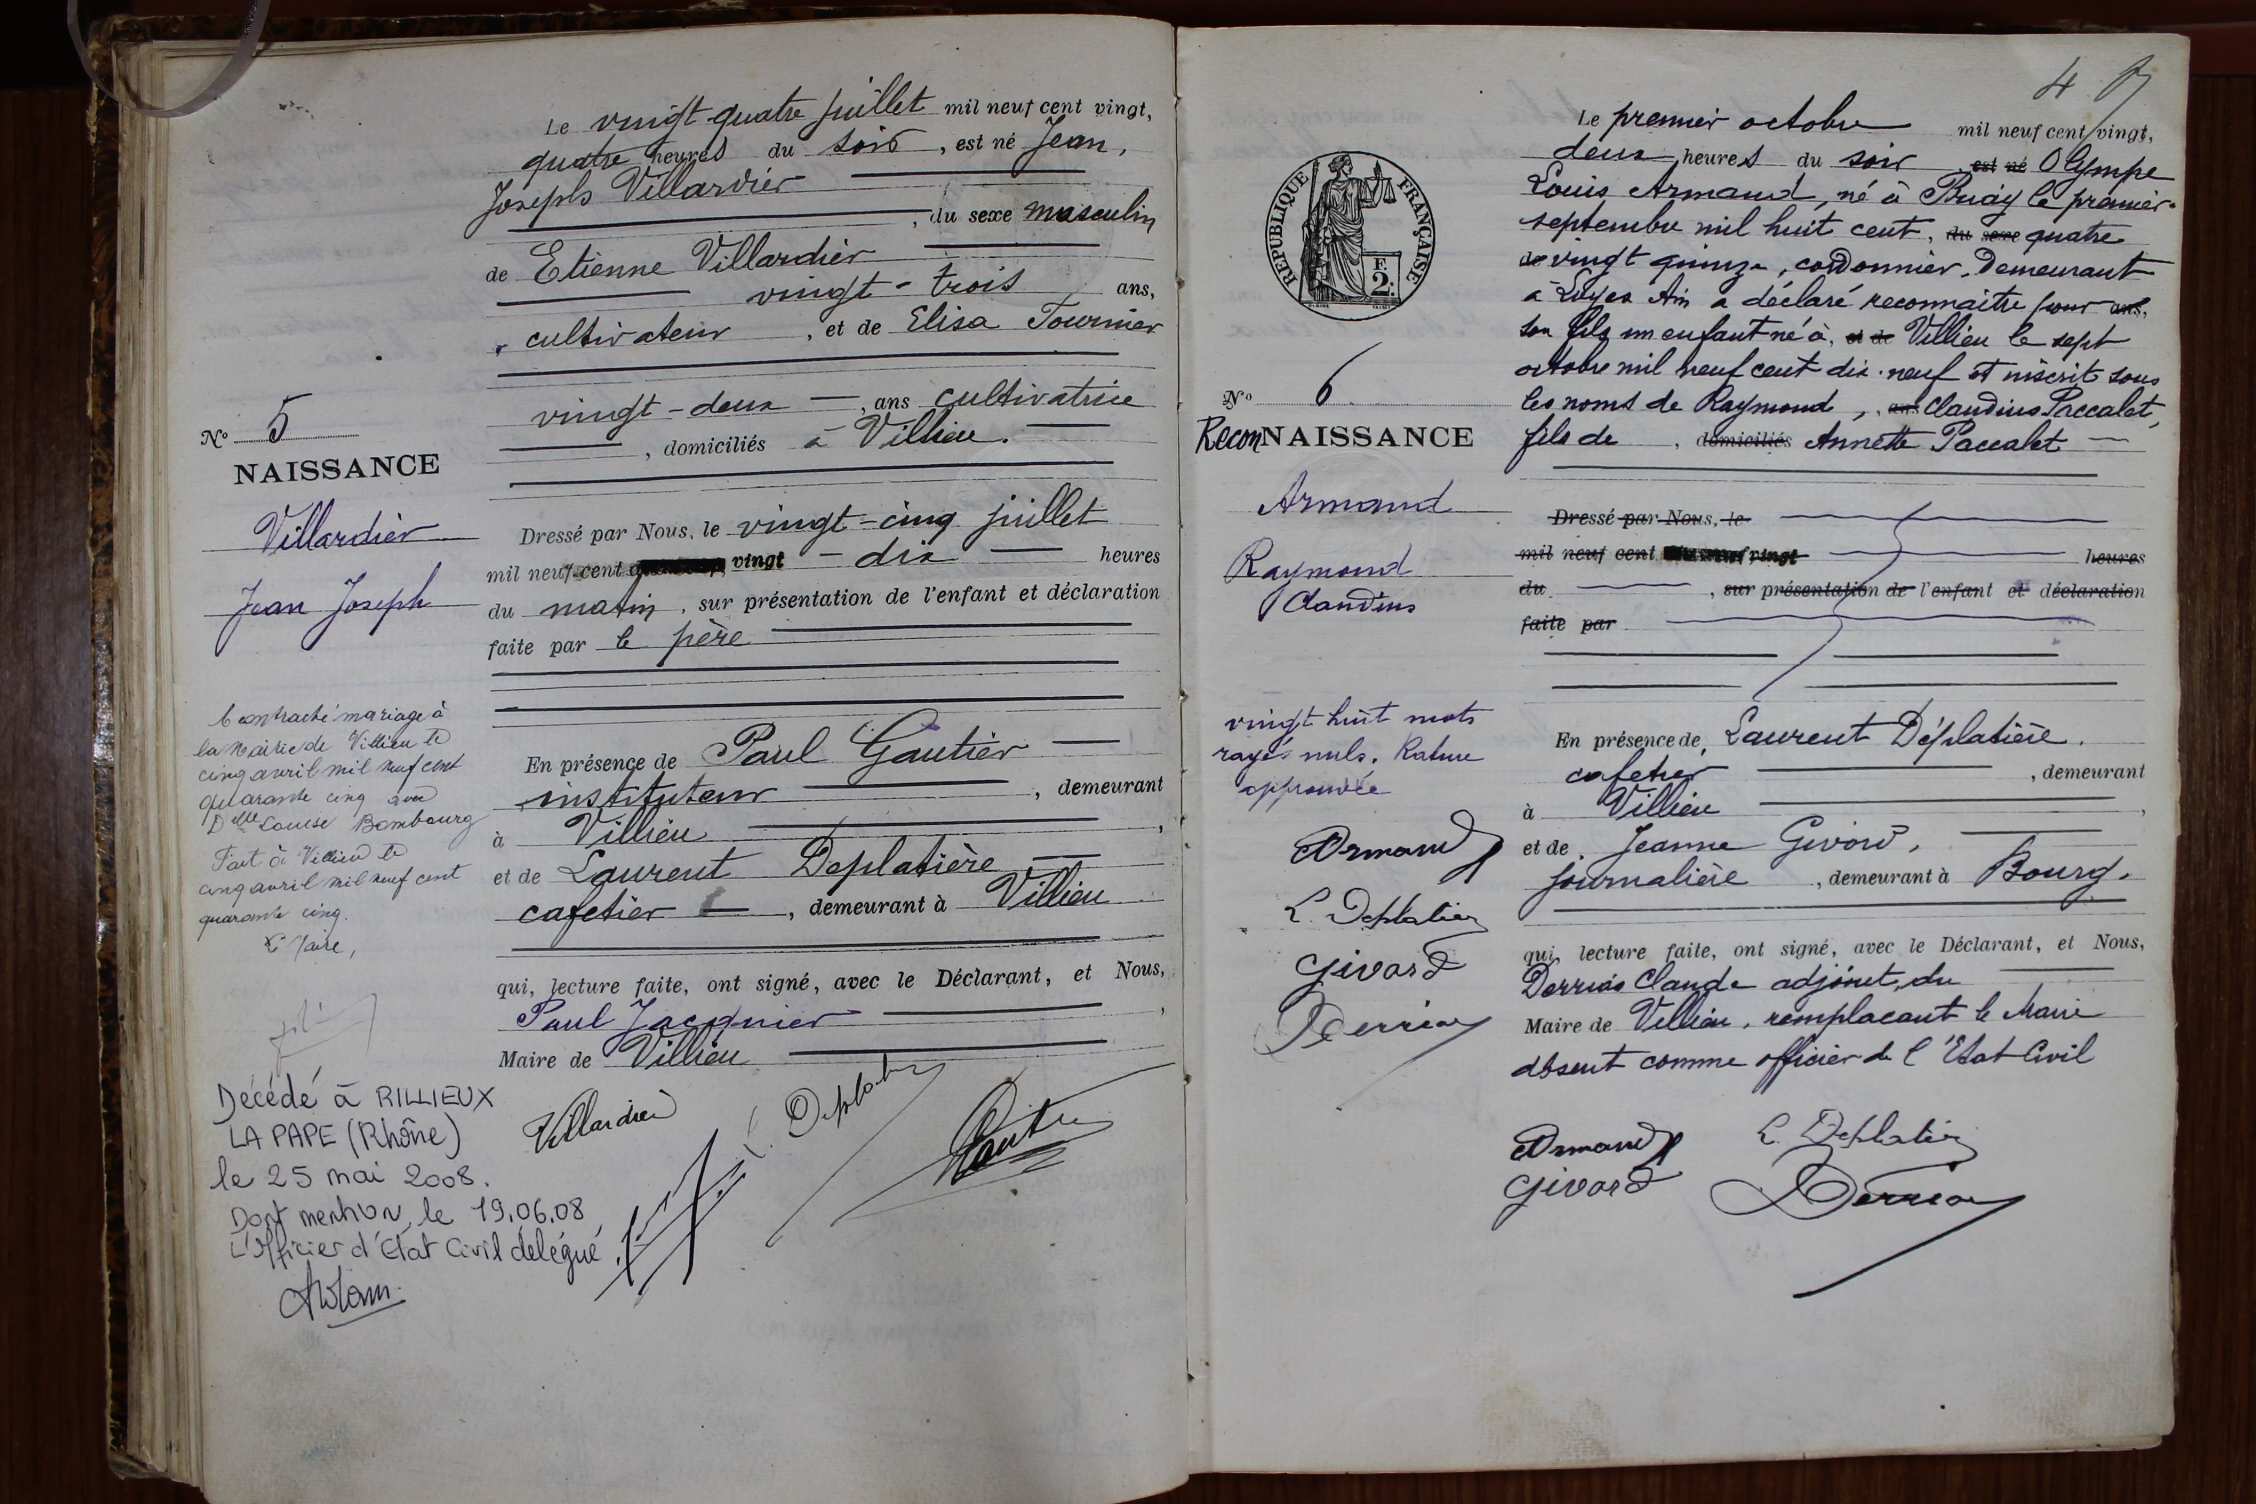 Le vingt-quatre juillet mil neuf cent vingt,
quatre heures du soir, est né Jean,
Joseph Villardier
, du sexe masculin
de Etienne Villardier
vingt-trois ans,
cultivateur, et de Elisa Tournier
vingt-deux —, ans cultivatrice
, domiciliés à Villieu.
Nº 5
NAISSANCE
Villardier
Jean Joseph
Dressé par Nous, le vingt-cinq juillet
mil neuf cent vingt — dix — heures
du matin, sur présentation de l'enfant et déclaration
faite par le père
En présence de Paul Gautier —
instituteur, demeurant
à Villieu,
et de Laurent Deplatière —
cafetier —, demeurant à Villieu
qui, lecture faite, ont signé, avec le Déclarant, et Nous,
Paul Jacquier,
Maire de Villieu
Villardier
Deplatière
Gautier
A contracté mariage à
la Mairie de Villieu le
cinq avril mil neuf cent
quarante cinq avec
Delle Louise Bombourg
Fait à Villieu le
cinq avril mil neuf cent
quarante cinq.
Le Maire,
Décédé à RILLIEUX
LA PAPE (Rhône)
le 25 mai 2008.
Dont mention, le 19.06.08
L'Officier d'Etat Civil délégué.
4
REPUBLIQUE FRANÇAISE
F.
2.
Le premier octobre mil neuf cent vingt,
deux heures du soir est né Olympe
Louis Armand, né à Bruay le premier
septembre mil huit cent, du sexe quatre
de vingt quinze, cordonnier, demeurant
à Loyes Ain a déclaré reconnaître pour ans,
son fils un enfant né à, et de Villieu le sept
octobre mil neuf cent dix-neuf et inscrit sous
les noms de Raymond, ans Claudius Paccalet,
fils de, domiciliés Annette Paccalet —
Nº 6
ReconNAISSANCE
Armand
Raymond
Claudius
Dressé par Nous, le
mil neuf cent vingt heures
du, sur présentation de l'enfant et déclaration
faite par
vingt huit mots
rayés nuls. Rature
approuvée
Armand
L. Deplatière
Givord
Derrias
En présence de Laurent Déplatière.
cafetier, demeurant
à Villieu,
et de Jeanne Givord,
journalière, demeurant à Bourg.
qui, lecture faite, ont signé, avec le Déclarant, et Nous,
Derrias Claude adjoint, du
Maire de Villieu, remplacant le Maire
absent comme officier de l'Etat Civil
Armand L. Deplatière
Givord Derrias